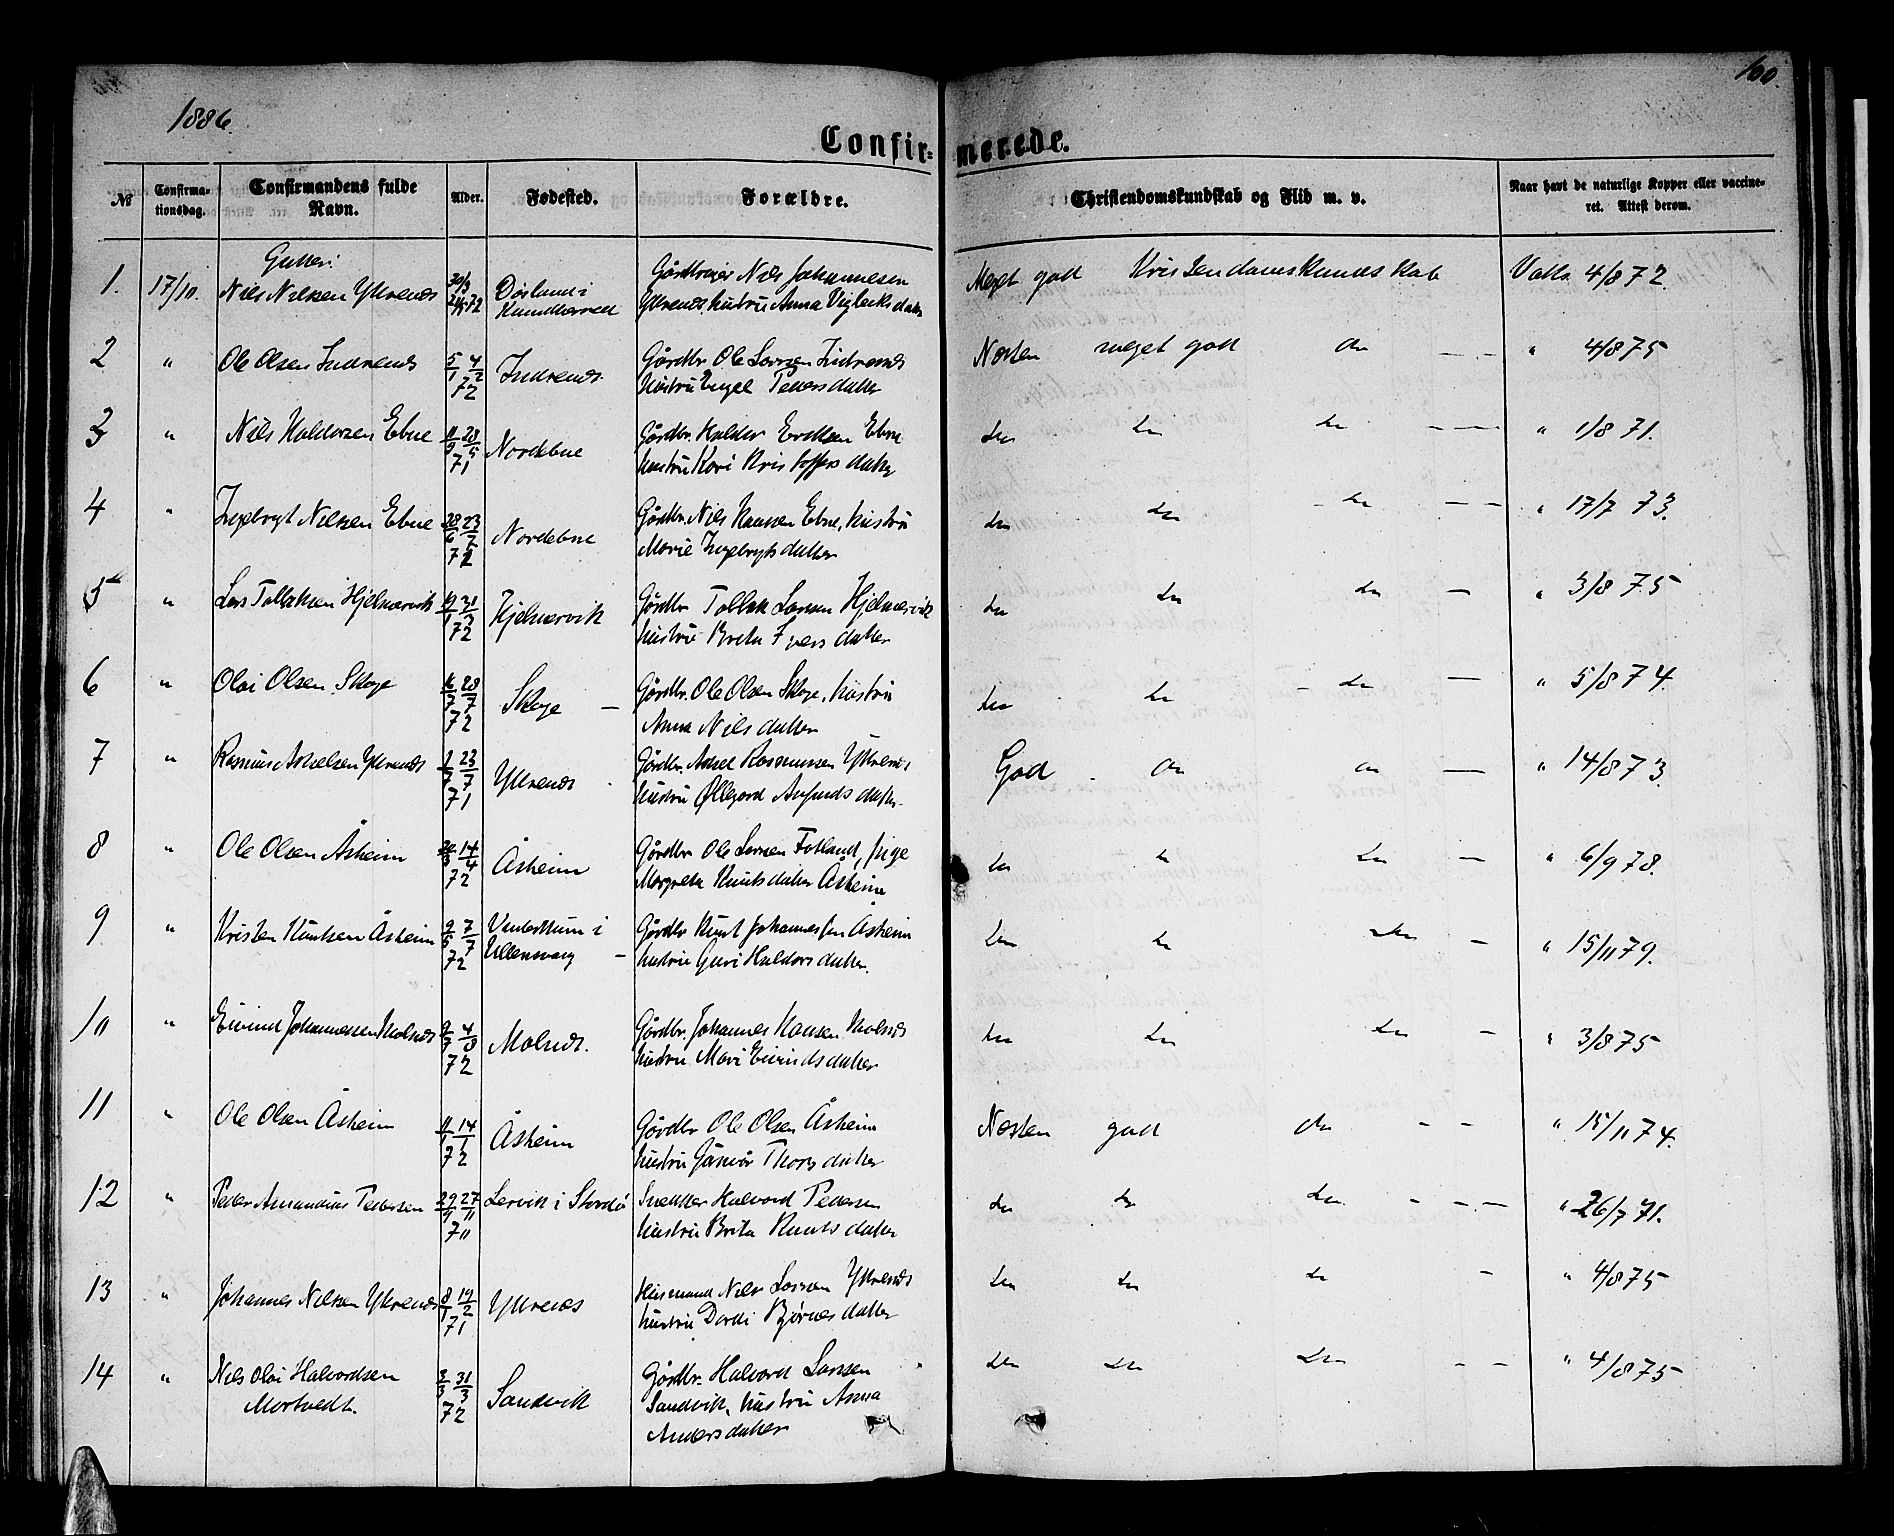 1886.
100.
Confirmerede.
No
Confirmationsdag.
Confirmandens fulde Navn.
Alder.
Fødested.
Forældre.
Christendomskundskab og Flid m. v.
Naar havt de naturlige Kopper eller vaccineret. Attest derom.
Gutter:
1. 17/10. Nils Nilsen Ytrenes 72 i Kvindherred Nils Johannesen
Ytrenes, hustru Anna datter Meget god Kristendomskundskab 4/8 72.
2 " Ole Olsen Indrenes 5/1 4/2 72 Indrenes. Gårdbr Ole Larsen Indrenes
hustru Engel Pedersdatter Næsten meget god do — " 4/8 75
3 " Nils Haldorsen Ebne 28/5 71 Nordebne Gårdbr. Haldor Eriksen Ebne
hustru Kari Kristoffersdatter do do do — " 1/8 71.
4 " Ingebrigt Nilsen Ebne 28/6 23/7 72 Nordebne Gårdbr. Nils Hansen Ebne, hustru
Marie Ingebrigtsdatter do do do — " 17/7 73.
5 " Lars Tollaksen Hjelmervik 31/3 72 Hjelmervik Gårdbr Tollak Larsen Hjelmervik
hustru Brita Iversdatter do do do — " 3/8 75
6 " Olai Olsen Skoge 28/7 72 Skoge — Gårdbr. Ole Olsen Skoge, hustru
Anna Nilsdatter do do do — " 5/8 74.
7 " Rasmus Askelsen Ytrenes 23/7 71 Ytrenes Gårdbr. Askel Rasmussen Ytrenes
hustru Øllegård God do do — " 14/8 73.
8 " Ole Olsen Åsheim 14/4 72 Åsheim Gårdbr Ole Larsen Fatland, pige
Margreta Knutsdatter Åsheim do do do — " 6/9 78.
9 " Kristen Knutsen Åsheim 7/7 72 i Ullensvang — Gårdbr Knut Johannessen Åsheim
hustru Guri Haldorsdatter. do do do — " 15/11 79.
10 " Eivind Johannessen Molnes 4/8 72 Molnes. Gårdbr. Johannes Hansen Molnes
hustru Mari Eivindsdatter do do do — " 3/8 75
11 " Ole Olsen Åsheim 14/1 72 Åsheim Gårdbr Ole Olsen Åsheim
hustru Thorsdatter Næsten god do — " 15/11 74.
12 " Peder Amandus Pedersen 27/11 70 Lervik i Stordø Snekker Halvord Pedersen
hustru Brita Knutsdatter do do do — " 26/7 71.
13 " Johannes Nilsen Ytrenes 19/2 71 Ytrenes Husmand Nils Larsen Ytrenes
hustru Dordi Bjørnesdatter do do do — " 4/8 75
14 " Nils Olai Halvordsen
Mortvedt. 3/3 31/3 72 Sandvik Gårdbr. Halvord Larsen
Sandvik, hustru Anna
Andersdatter do do do — " 4/8 75